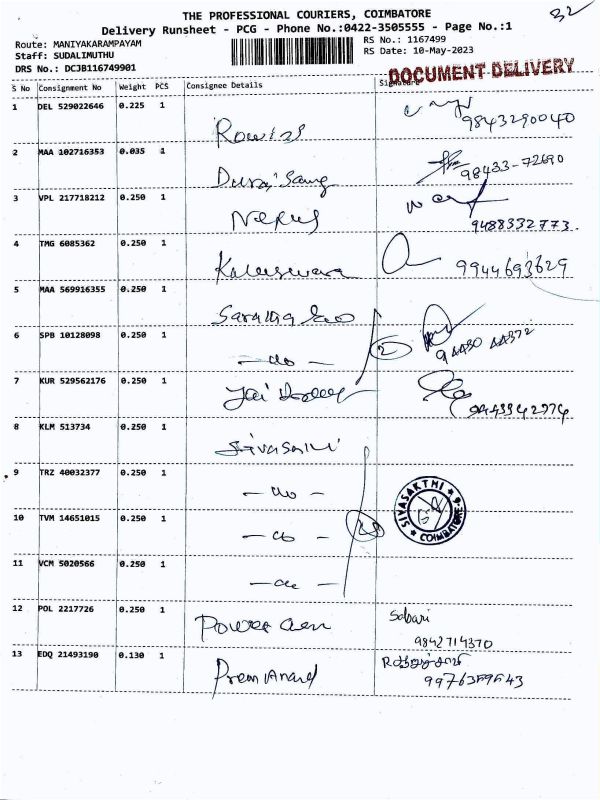 32
THE PROFESSIONAL COURIERS, COIMBATORE
Delivery Runsheet - PCG - Phone No.:0422-3505555 - Page No.:1
Route: MANIYAKARAMPAYAM
RS No.: 1167499
Staff: SUDALIMUTHU
RS Date: 10-May-2023
DRS No.: DCJB116749901
DOCUMENT DELIVERY
S No Consignment No Weight PCS Consignee Details Signature
1 DEL 529022646 0.225 1
9843290040
2 MAA 102716353 0.035 1 98433-72690
3 VPL 217718212 0.250 1
9488332773.
4 TMG 6085362 0.250 1 Kaleeswara 9944693629
5 MAA 569916355 0.250 1
6 SPB 10128098 0.250 1 - do - 2 94430 44372
7 KUR 529562176 0.250 1 Jai
9443342774
8 KLM 513734 0.250 1 Sivasakthi
9 TRZ 40032377 0.250 1 - do -
10 TVM 14651015 0.250 1 - do -
SIVASAKTHI
COIMBATORE-6
11 VCM 5020566 0.250 1 - do -
12 POL 2217726 0.250 1 Power Gen Sabari
9842714370
13 EDQ 21493190 0.130 1 Prem Anand